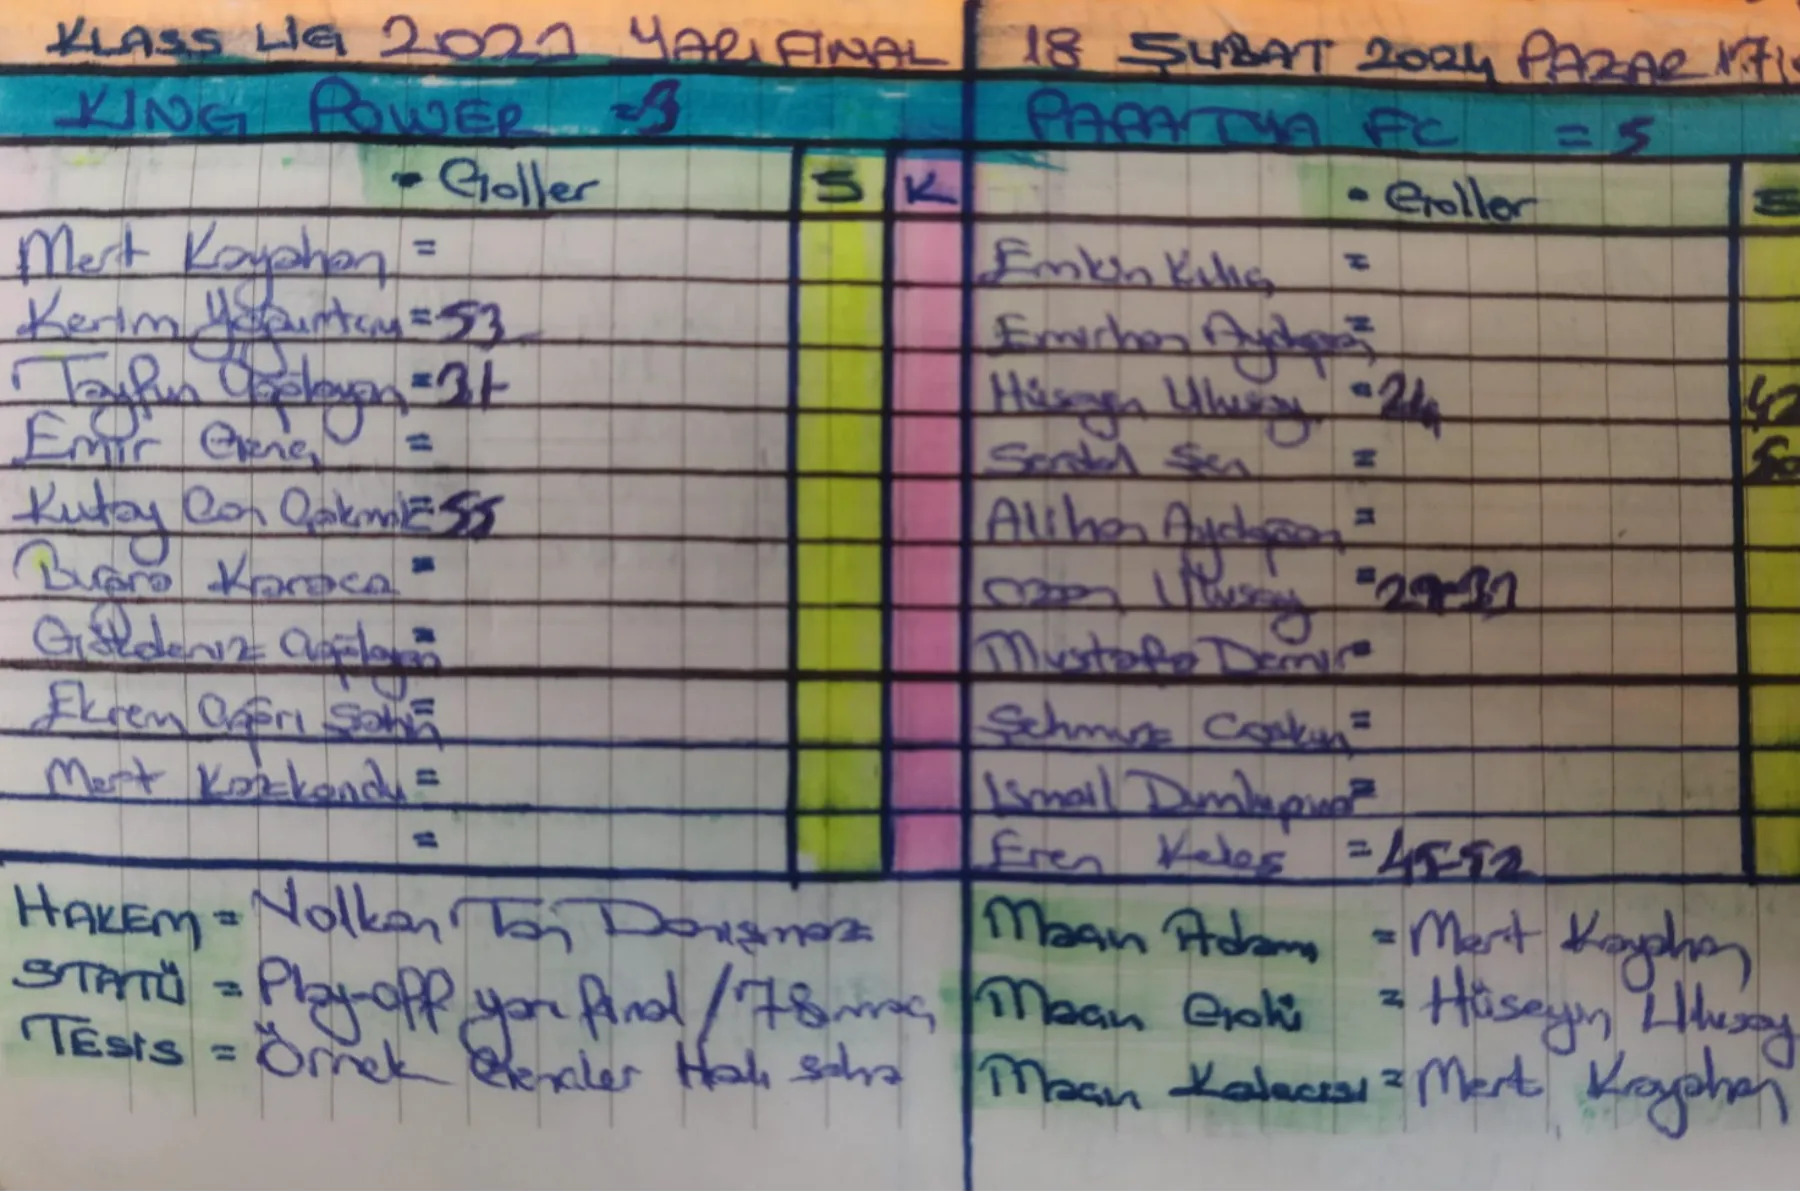 KLASS LİG 2021 YARI FİNAL
KING POWER = 3
• Goller S K
Mert Kayahan =
Kerim Yoğurtçu = 53
Tayfun Çağlayan = 31
Emir Genç =
Kutay Can Çakmak = 55
Buğra Karaca =
Gökdeniz Çağlayan =
Ekrem Çağrı Şahin =
Mert Kozkondu =
=
HAKEM = Volkan Tan Danışmaz
STATÜ = Play-off yarı final / 78 maç
TESİS = Örnek Gençler Halı saha
18 ŞUBAT 2024 PAZAR 17
PAPATYA FC = 5
• Goller S
Emin Kılıç =
Emirhan Aydoğan =
Hüseyin Ulusoy = 24 42
Serdal Şen = 50
Alihan Aydoğan =
Ozan Ulusoy = 29-31
Mustafa Demir =
Şehmuz Coşkun =
İsmail Dumlupınar =
Eren Keleş = 45-52
Maçın Adamı = Mert Kayahan
Maçın Golü = Hüseyin Ulusoy
Maçın Kalecisi = Mert Kayahan